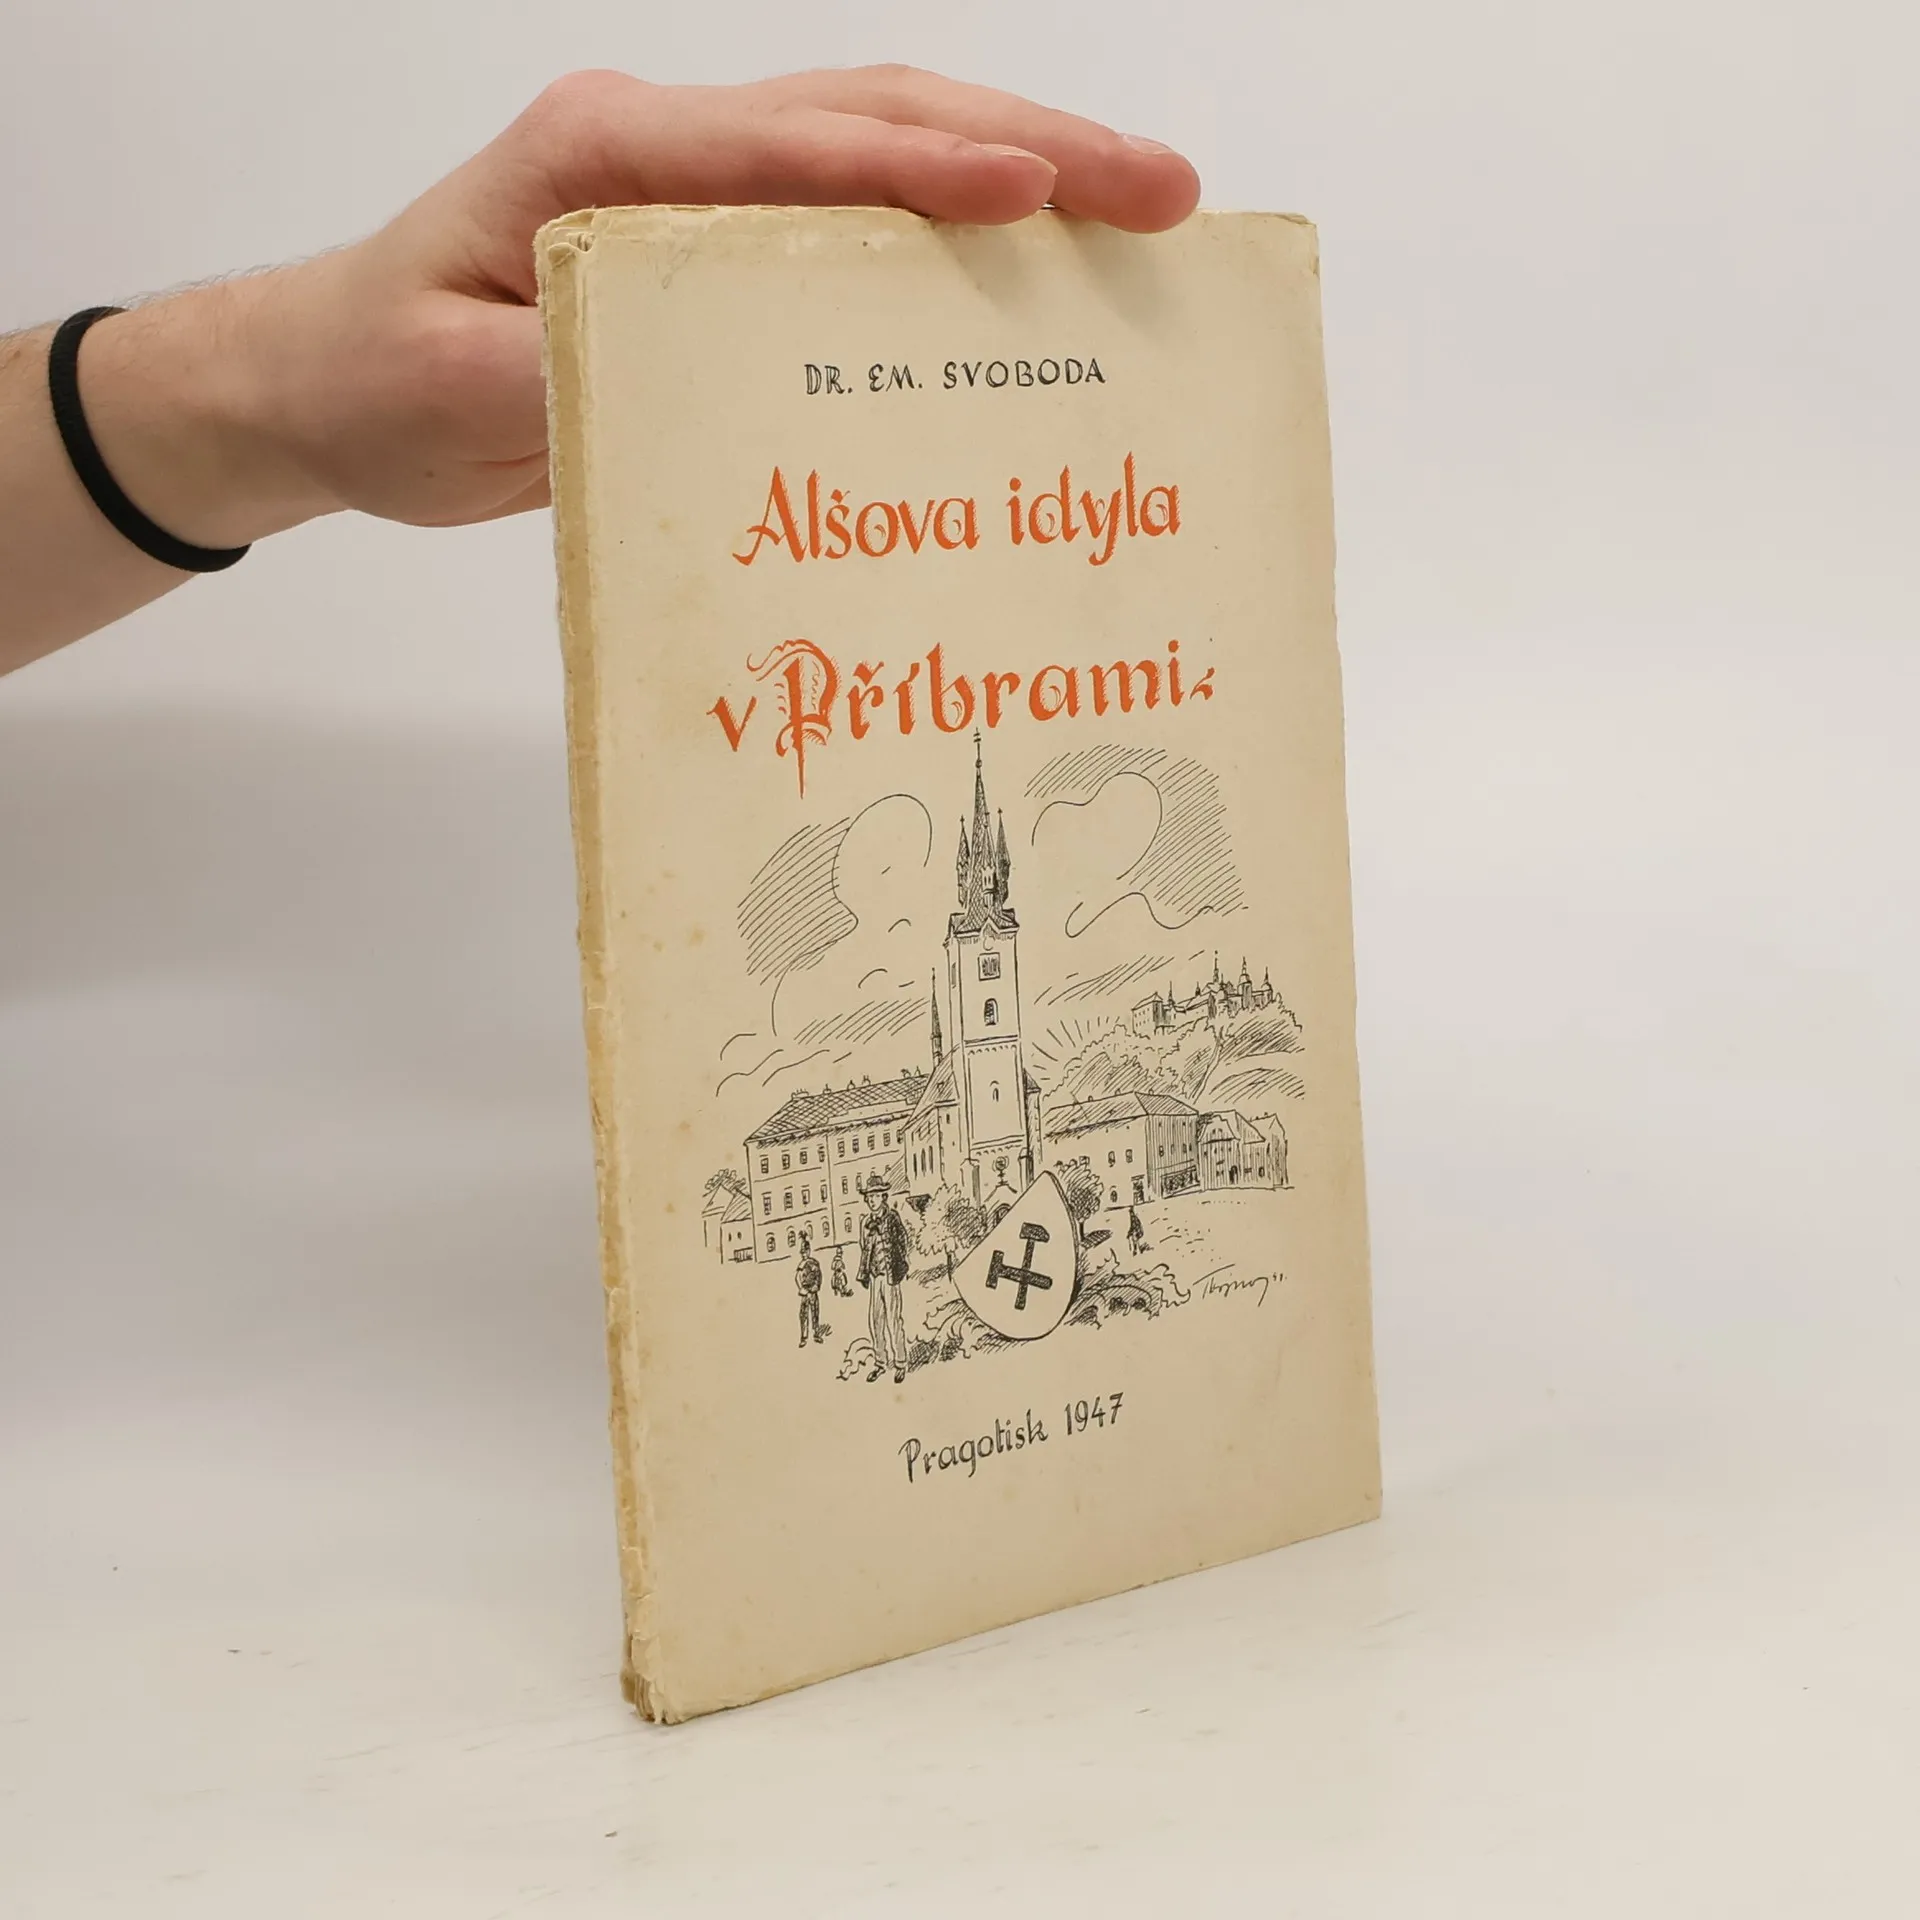 DR. EM. SVOBODA
Alšova idyla
v Příbrami
Pragotisk 1947